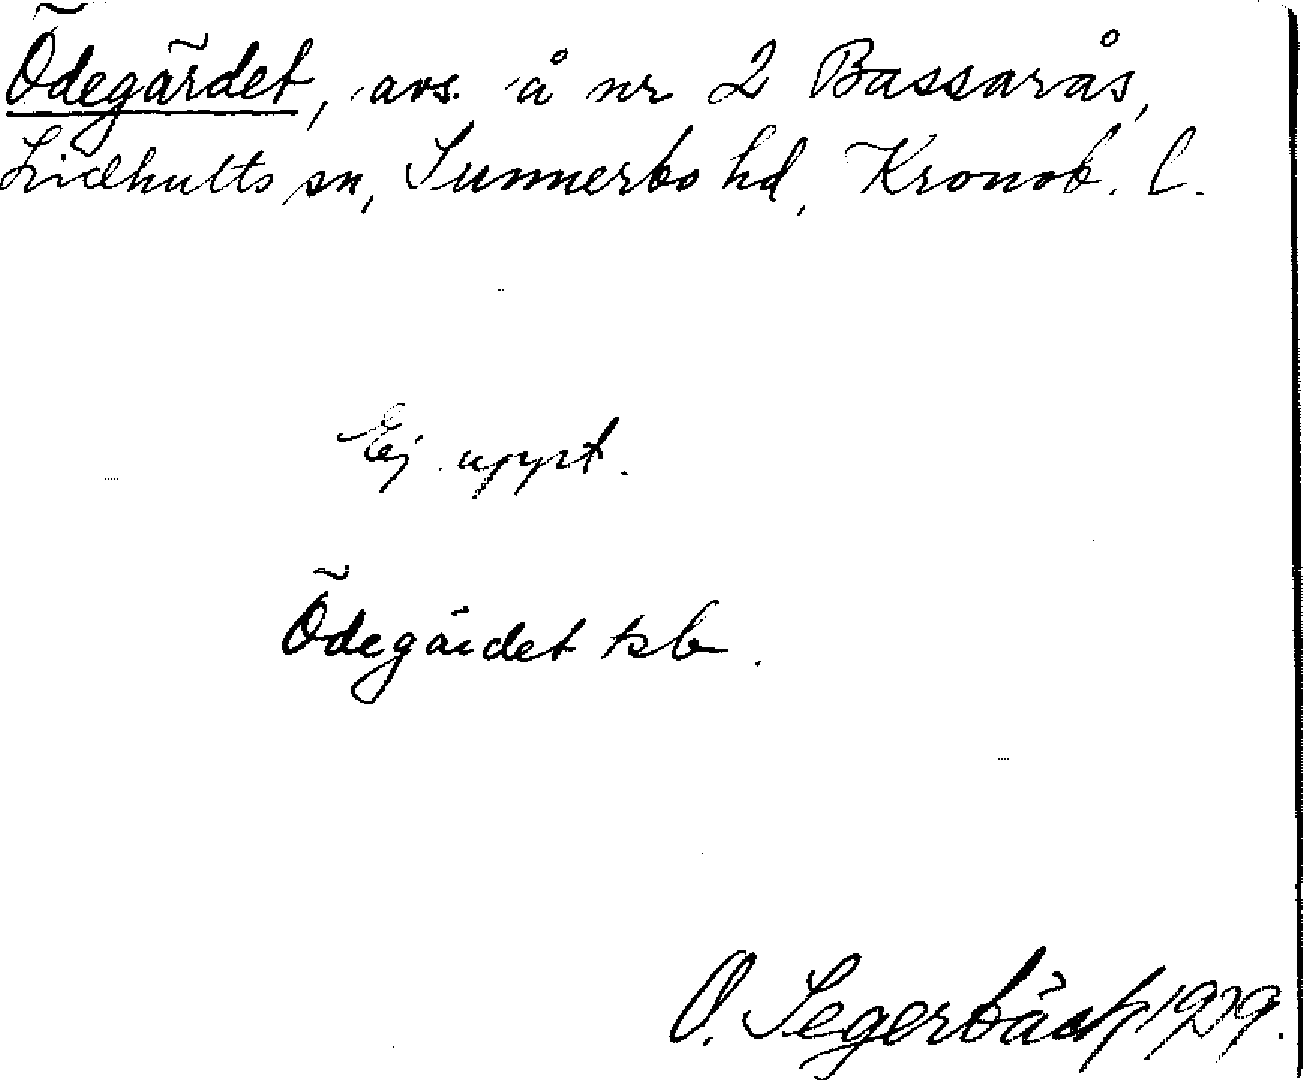 Ödegärdet, avs. å nr 2 Bassarås,
Lidhults sn, Sunnerbo hd, Kronob. l.
Ej uppt.
Ödegärdet tsb.
O. Segerbäck 1929.